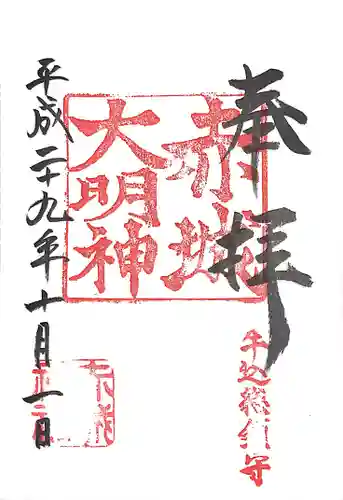 奉拝
赤城
大明神
牛込総鎮守
平成二十九年十月一日